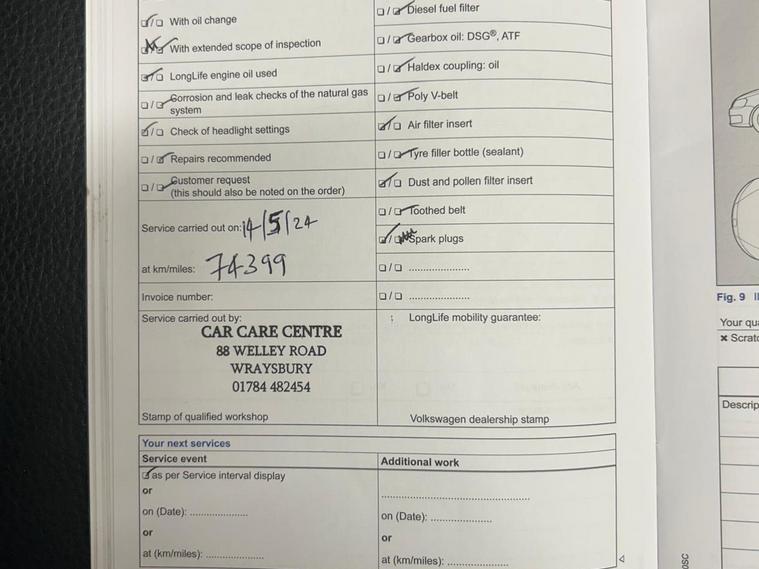 With oil change
With extended scope of inspection
LongLife engine oil used
Corrosion and leak checks of the natural gas
system
Check of headlight settings
Repairs recommended
Customer request
(this should also be noted on the order)
Service carried out on: 14/5/24
at km/miles: 74399
Invoice number:
Service carried out by:
CAR CARE CENTRE
88 WELLEY ROAD
WRAYSBURY
01784 482454
Stamp of qualified workshop
Diesel fuel filter
Gearbox oil: DSG®, ATF
Haldex coupling: oil
Poly V-belt
Air filter insert
Tyre filler bottle (sealant)
Dust and pollen filter insert
Toothed belt
Spark plugs
.....................
.....................
LongLife mobility guarantee:
Volkswagen dealership stamp
Your next services
Service event
as per Service interval display
or
on (Date): ....................
or
at (km/miles): ....................
Additional work
..................................................
on (Date): .....................
or
at (km/miles): .....................
Fig. 9
Your
✖